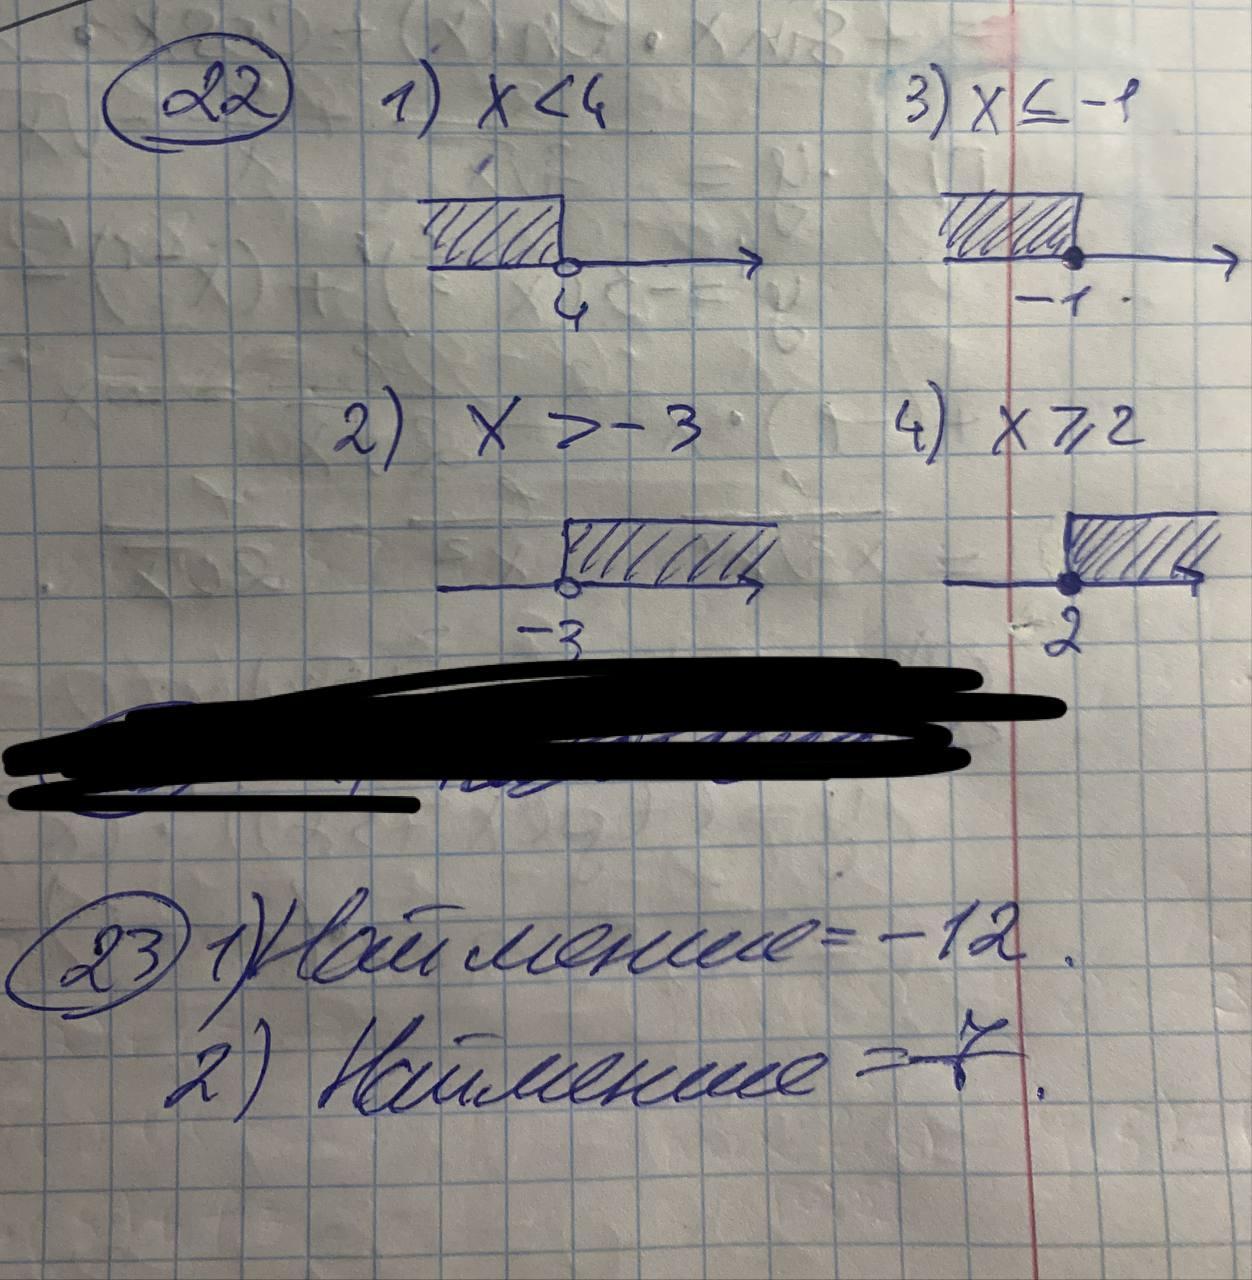 22 1) x < 4 3) x ≤ -1
4 -1
2) x > -3 4) x ⩾ 2
-3 2
23 1) Найменше = -12.
2) Найменше = -7.